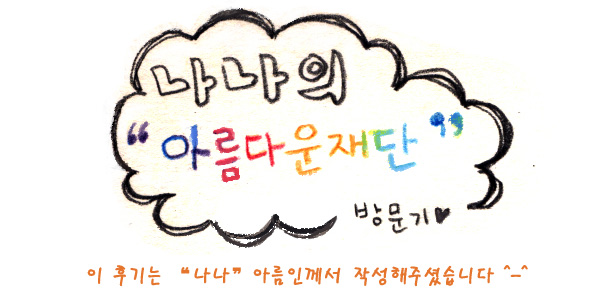 나나의
“아름다운재단”
방문기♥
이 후기는 “나나” 아름인께서 작성해주셨습니다 ^-^